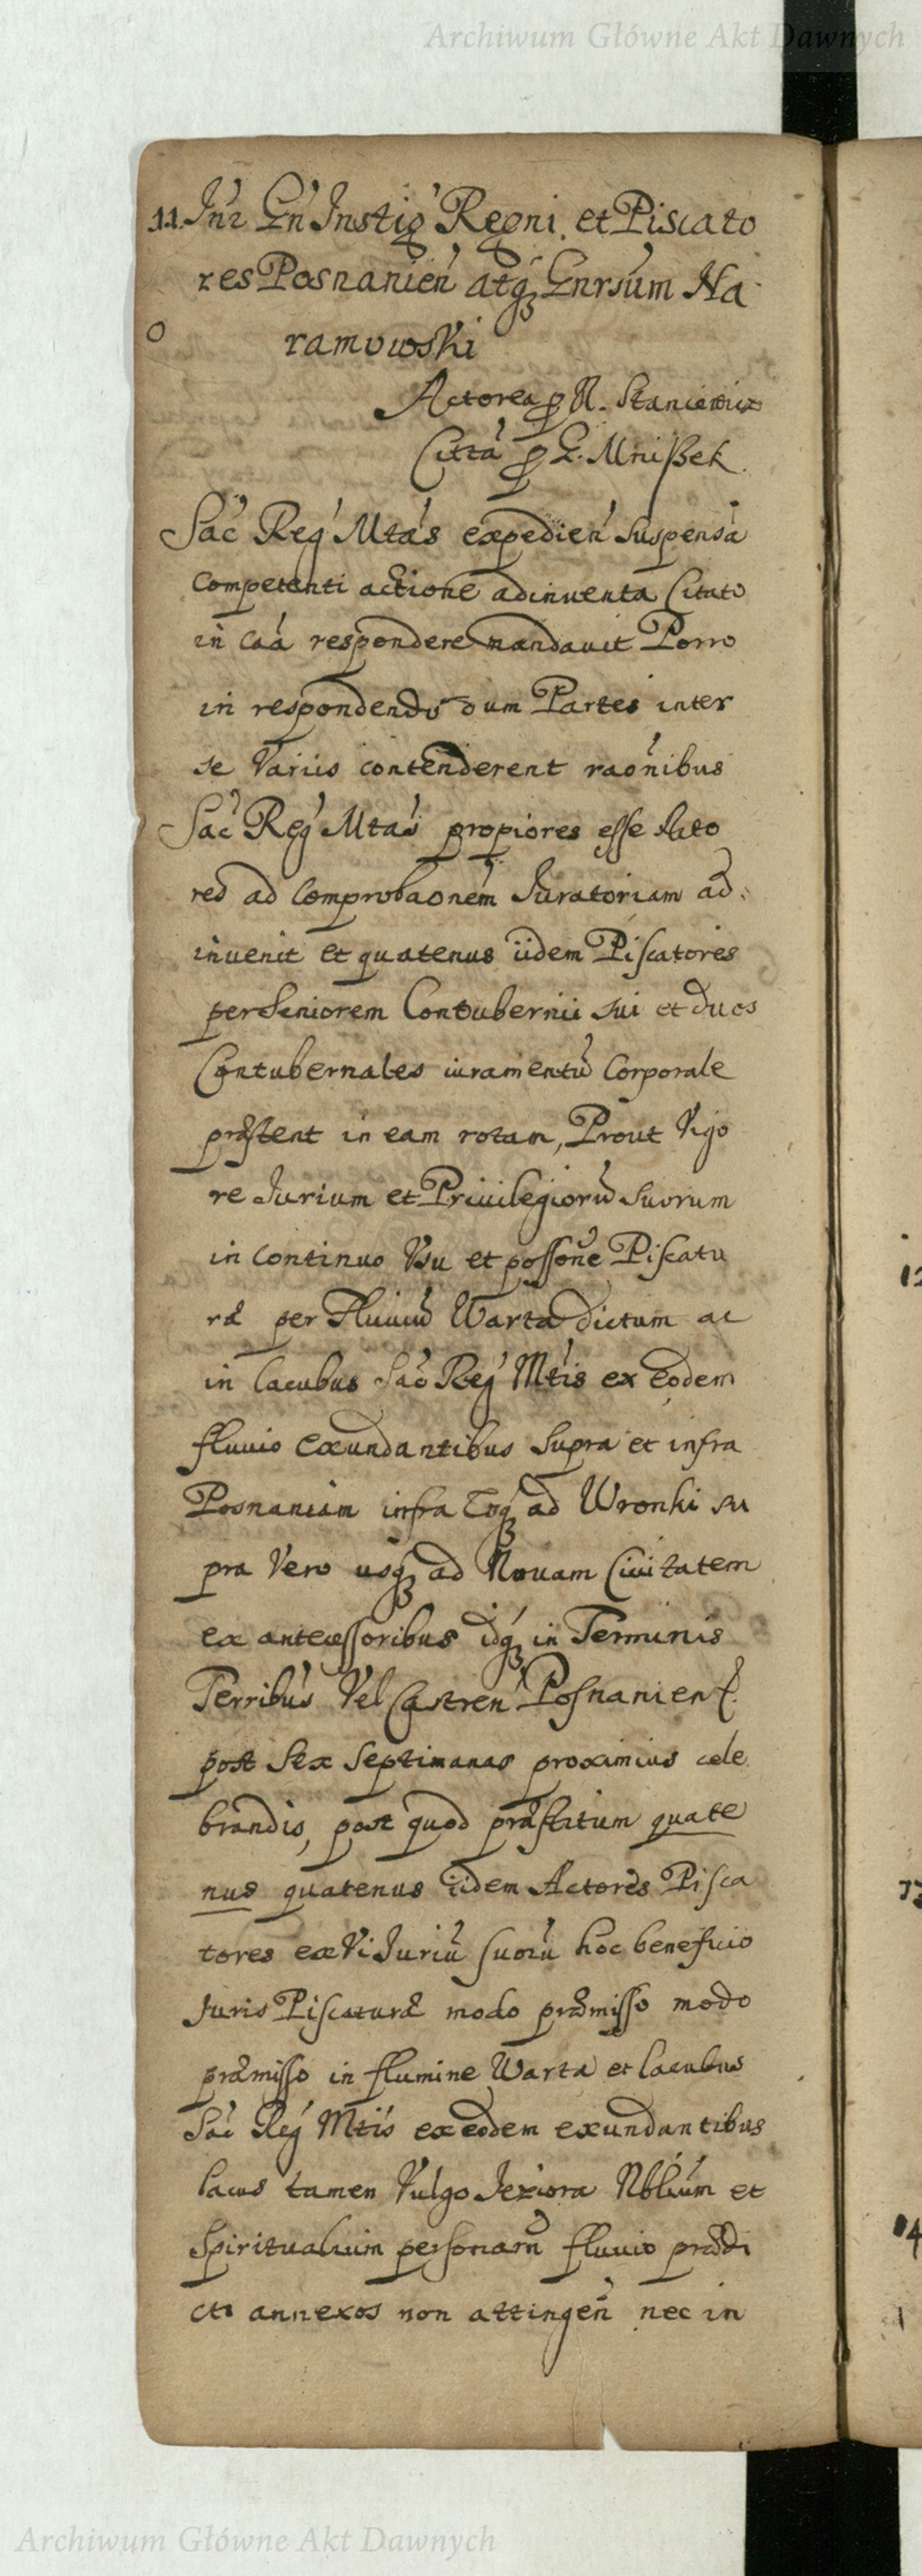 Archiwum Główne Akt Dawnych
11. Inr Gn Instig Regni et Piscato
res Posnanien atq Gnrsum Na
O
ramowski
Actorea p N. Staniewicz
Citta p G. Mnißek.
Sac Reg Mtas expedien suspensa
Competenti actione adinuenta Citato
in caa respondere mandauit Porro
in respondendo dum Partes inter
se Variis contenderent raonibus
Sac Reg Mtas propiores esse
red ad Comprobaonem Juratoriam ad
inuenit et quatenus iidem Piscatores
per Seniorem Contubernii sui et duos
Contubernales iuramentu Corporale
præstent in eam rotam, Prout Vigo
re Jurium et Priuilegioru suorum
in continuo Vsu et possone Piscatu
ræ per Fluuiu Warta dictum ac
in lacubus Sac Reg Mtis ex eodem
fluuio exundantibus supra et infra
Posnaniam infra usq ad Wronki su
pra Vero usq ad Nouam Ciuitatem
ex antecessoribus idq in Terminis
Terribus Vel Castren Posnanien
post Sex Septimanas proximius cele
brandis, post quod præstitum quate
nus quatenus iidem Actores Pisca
tores ex Vi Juriu suoru hoc beneficio
Juris Piscaturæ modo præmisso modo
præmisso in flumine Warta et lacubus
Sac Reg Mtis ex eodem exundantibus
lacus tamen Vulgo Jeziora Nblium et
Spiritualium personaru fluuio prædi
cto annexos non attingen nec in
12
13
14
Archiwum Główne Akt Dawnych